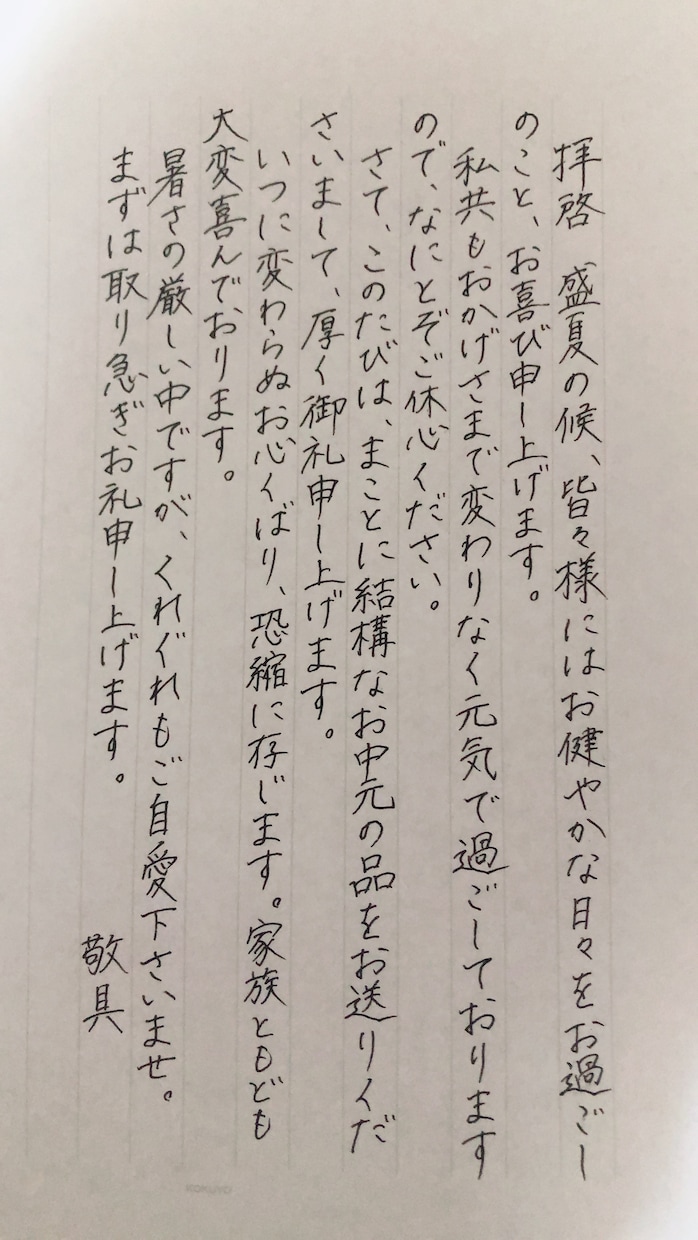 拝啓　盛夏の候、皆々様にはお健やかな日々をお過ごし
のこと、お喜び申し上げます。
私共もおかげさまで変わりなく元気で過ごしております
ので、なにとぞご休心ください。
さて、このたびは、まことに結構なお中元の品をお送りくだ
さいまして、厚く御礼申し上げます。
いつに変わらぬお心くばり、恐縮に存じます。家族ともども
大変喜んでおります。
暑さの厳しい中ですが、くれぐれもご自愛下さいませ。
まずは取り急ぎお礼申し上げます。
敬具
KOKUYO